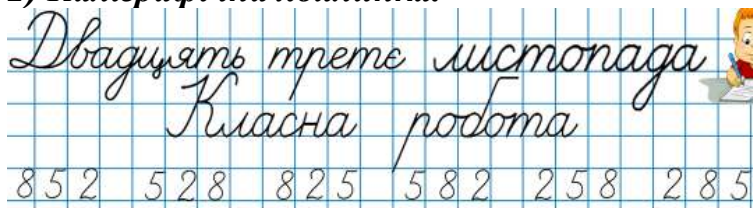 Двадцять третє листопада
Класна робота
852 528 825 582 258 285